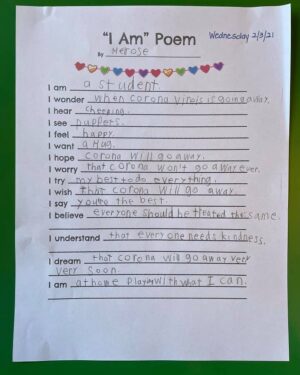 "I Am" Poem
Wednesday 2/3/21
By Melrose
I am a student.
I wonder when corona virois is going away.
I hear cheeping.
I see puppers.
I feel happy.
I want a Hug.
I hope corona will go away.
I worry that corona won't go away ever.
I try my best to do everything.
I wish that corona will go away.
I say you're the best.
I believe everyone should be treated the same.
I understand that everyone needs kindness.
I dream that corona will go away very
very soon.
I am at home playing with what I can.